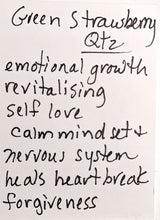 Green Strawberry
Qtz
emotional growth
revitalising
self love
calm mind set &
nervous system
heals heartbreak
forgiveness